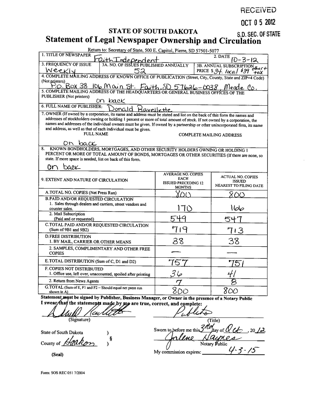 RECEIVED
OCT 05 2012
S.D. SEC. OF STATE
STATE OF SOUTH DAKOTA
Statement of Legal Newspaper Ownership and Circulation
Return to: Secretary of State, 500 E. Capitol, Pierre, SD 57501-5077
1. TITLE OF NEWSPAPER Faith Independent
2. DATE 10-3-12
3. FREQUENCY OF ISSUE Weekly
3A. NO. OF ISSUES PUBLISHED ANNUALLY 52
3B. ANNUAL SUBSCRIPTION PRICE $ 34 local $39
4. COMPLETE MAILING ADDRESS OF KNOWN OFFICE OF PUBLICATION (Street, City, County, State and ZIP+4 Code)
(Not printers)
P.O. Box 38 106 Main St. Faith, SD 57626-0038 Meade Co.
5. COMPLETE MAILING ADDRESS OF THE HEADQUARTERS OF GENERAL BUSINESS OFFICES OF THE
PUBLISHER (Not printers)
on back
6. FULL NAME OF PUBLISHER: Donald Ravellette
7. OWNER (If owned by a corporation, its name and address must be stated and list on the back of this form the names and
addresses of stockholders owning or holding 1 percent or more of total amount of stock. If not owned by a corporation, the
names and addresses of the individual owners must be given. If owned by a partnership or other unincorporated firm, its name
and address, as well as that of each individual must be given.
FULL NAME COMPLETE MAILING ADDRESS
on back
8. KNOWN BONDHOLDERS, MORTGAGES, AND OTHER SECURITY HOLDERS OWNING OR HOLDING 1
PERCENT OR MORE OF TOTAL AMOUNT OF BONDS, MORTGAGES OR OTHER SECURITIES (If there are none, so
state. If more space is needed, list on back of this form.
on back
9. EXTENT AND NATURE OF CIRCULATION
AVERAGE NO. COPIES EACH ISSUED PRECEDING 12 MONTHS
ACTUAL NO. COPIES ISSUED NEAREST TO FILING DATE
A.TOTAL NO. COPIES (Net Press Run) 800 800
B.PAID AND/OR REQUESTED CIRCULATION
1. Sales through dealers and carriers, street vendors and
counter sales. 170 166
2. Mail Subscription
(Paid and or requested) 549 547
C.TOTAL PAID AND/OR REQUESTED CIRCULATION
(Sum of 9B1 and 9B2) 719 713
D.FREE DISTRIBUTION
1. BY MAIL, CARRIER OR OTHER MEANS 38 38
2. SAMPLES, COMPLIMENTARY AND OTHER FREE
COPIES
E.TOTAL DISTRIBUTION (Sum of C, D1 and D2) 757 751
F.COPIES NOT DISTRIBUTED
1. Office use, left over, unaccounted, spoiled after printing 36 41
2. Return from News Agents 7 8
G.TOTAL (Sum of E, F1 and F2 - Should equal net press run
shown in A) 800 800
Statement must be signed by Publisher, Business Manager, or Owner in the presence of a Notary Public
I swear that the statements made by me are true, correct, and complete:
(Signature) Publisher (Title)
State of South Dakota )
§
County of Haakon )
Sworn to before me this 3rd day of Oct, 2012
Notary Public
(Seal) My commission expires: 4-3-15
Form: SOS REC 051 7/2004